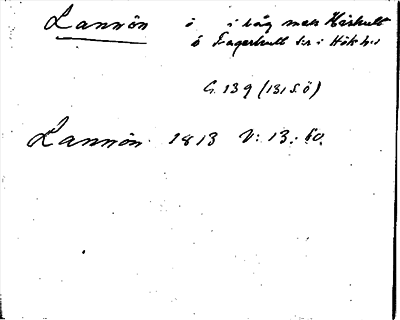 Lannön ö i båg mot Harhult
ö Fagerhult sn i Hök hd
G. 139 (131 SÖ)
Lannön 1813 V: 13: 60.